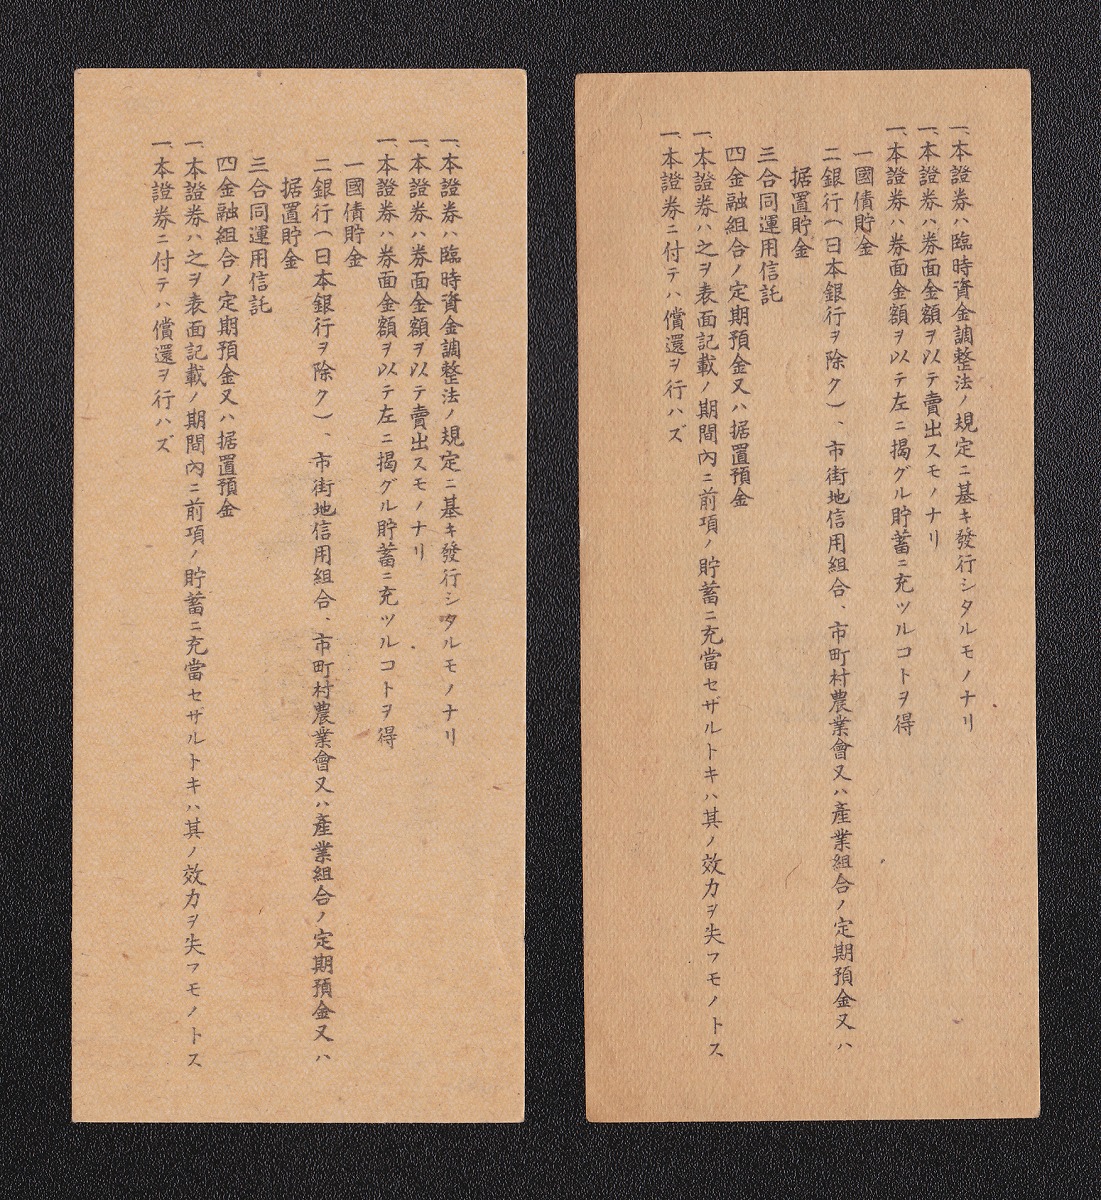 一、本證券ハ臨時資金調整法ノ規定ニ基キ發行シタルモノナリ
一、本證券ハ券面金額ヲ以テ賣出スモノナリ
一、本證券ハ券面金額ヲ以テ左ニ揭グル貯蓄ニ充ツルコトヲ得
一國債貯金
二銀行(日本銀行ヲ除ク)、市街地信用組合、市町村農業會又ハ產業組合ノ定期預金又ハ
据置貯金
三合同運用信託
四金融組合ノ定期預金又ハ据置預金
一、本證券ハ之ヲ表面記載ノ期間內ニ前項ノ貯蓄ニ充當セザルトキハ其ノ效力ヲ失フモノトス
一、本證券ニ付テハ償還ヲ行ハズ
一、本證券ハ臨時資金調整法ノ規定ニ基キ發行シタルモノナリ
一、本證券ハ券面金額ヲ以テ賣出スモノナリ
一、本證券ハ券面金額ヲ以テ左ニ揭グル貯蓄ニ充ツルコトヲ得
一國債貯金
二銀行(日本銀行ヲ除ク)、市街地信用組合、市町村農業會又ハ產業組合ノ定期預金又ハ
据置貯金
三合同運用信託
四金融組合ノ定期預金又ハ据置預金
一、本證券ハ之ヲ表面記載ノ期間內ニ前項ノ貯蓄ニ充當セザルトキハ其ノ效力ヲ失フモノトス
一、本證券ニ付テハ償還ヲ行ハズ